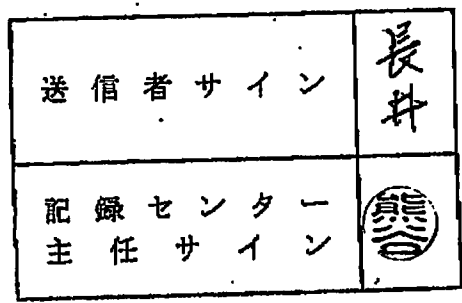 送信者サイン 長井
記録センター
主任サイン 熊谷